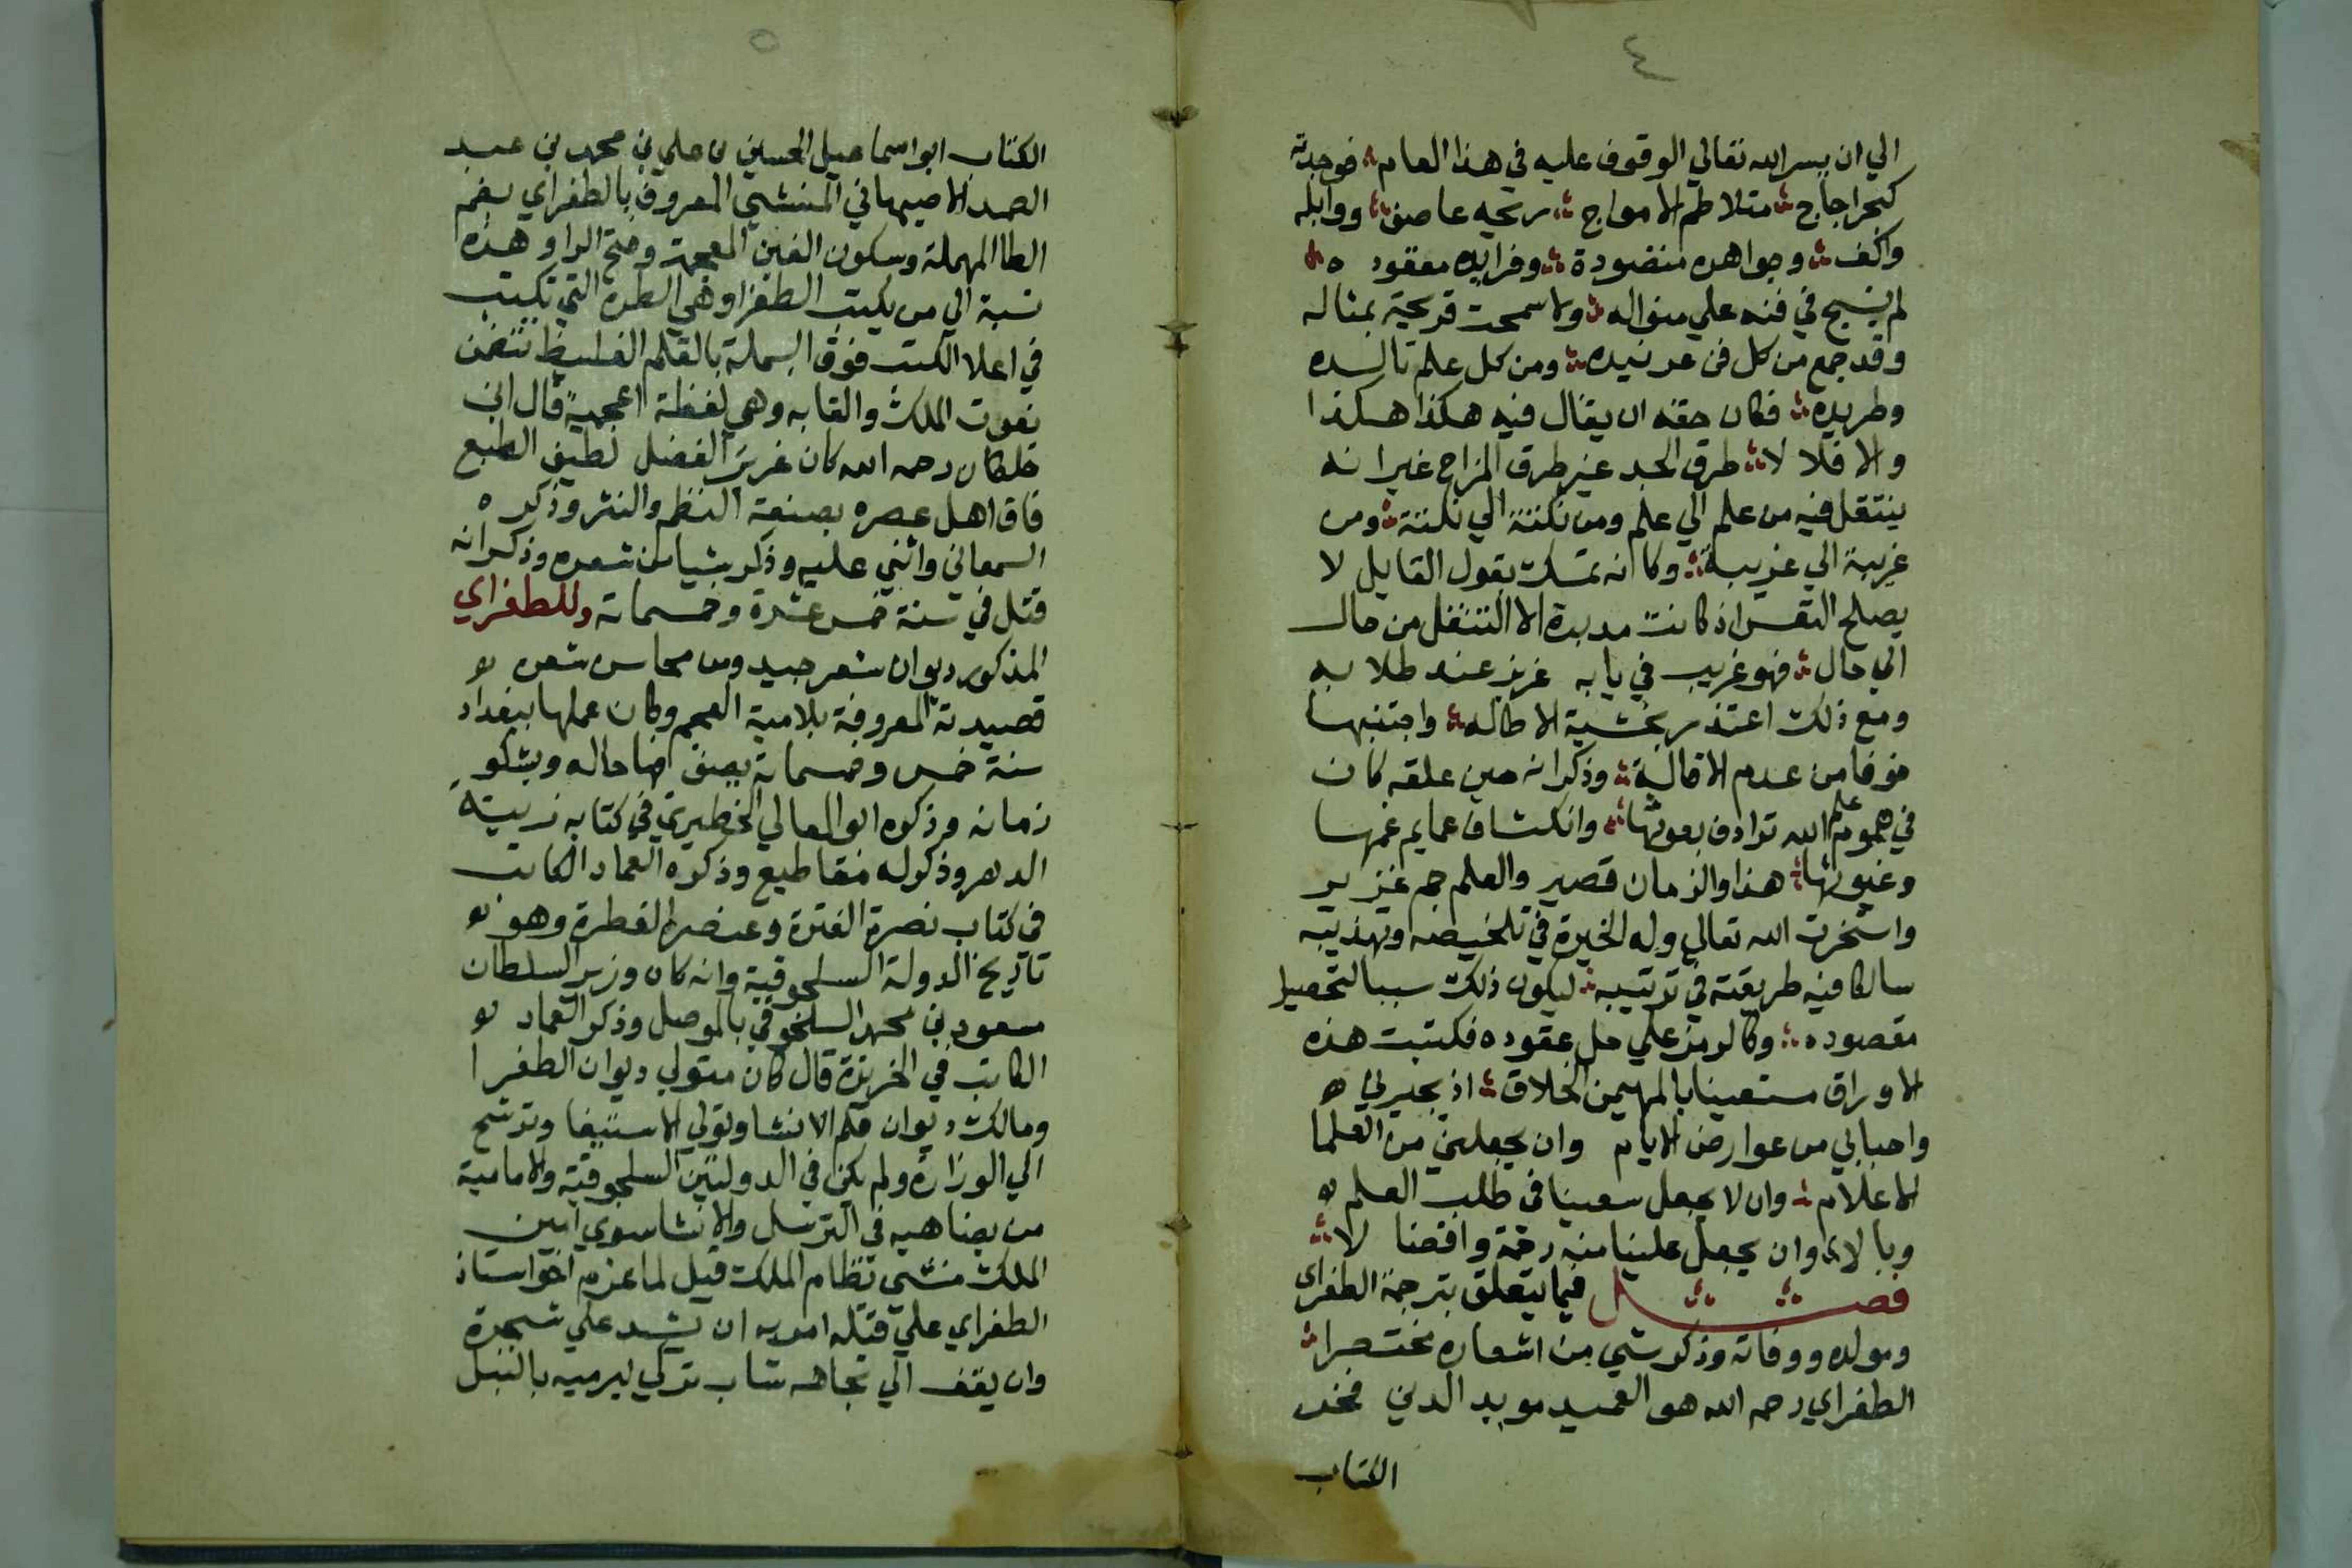 ٤
الي ان يسر الله تعالي الوقوف عليه في هذا العام فوجدته
كبحر اجاج متلاطم الامواج ريحه عاصف ووابله
واكف وجواهره منضودة وفرايده معقوده
لم ينسج في فنه علي منواله ولا سمحت قريحة بمثاله
وقد جمع من كل فن ومن كل علم تالده
وطريده فكان حقه ان يقال فيه هكذا هكذا
والا فلا لا طرق الجد غير طرق المزاح غير انه
ينتقل فيه من علم الي علم ومن نكتة الي نكتة ومن
غريبة الي غريبة وكانه تمسك بقول القايل لا
يصلح النفس اذ كانت مدبرة الا التنقل من حال
الي حال فهو غريب في بابه عزيز عند طلابه
ومع ذلك اعتذر بخشية الاطاله واجتنبها
خوفا من عدم الاقالة وذكر انه حين علقه كان
في هموم علم الله ترادف بعوثها وانكشاف غمايم غمها
وغيوثها هذا والزمان قصير والعلم جم غزير
واستخرت الله تعالي وله الخيرة في تلخيصه وتهذيبه
سالكا فيه طريقته في ترتيبه ليكون ذلك سببا لتحصيل
مقصوده وكالرمز علي حل عقوده فكتبت هذه
الاوراق مستعينا بالمهيمن الخلاق اذ يجيرني
واحبابي من عوارض الايام وان يجعلني من العلما
الاعلام وان لا يجعل سعينا في طلب العلم
وبالا وان يجعل علينا منه رحمة وافضالا
فصل فيما يتعلق بترجمة الطغراي
ومولده ووفاته وذكر شي من اشعاره مختصرا
الطغراي رحمه الله هو العميد مويد الدين فخر
الكتاب
٥
الكتاب ابو اسماعيل الحسين بن علي بن محمد بن عبد
الصمد الاصبهاني المنشي المعروف بالطغراي بضم
الطا المهملة وسكون الغين المعجمة وفتح الرا وهذه
نسبة الي من يكتب الطغرا وهي الطرة التي تكتب
في اعلا الكتب فوق البسملة بالقلم الغليظ تتضمن
نعوت الملك والقابه وهي لفظة اعجمية قال ابن
خلكان رحمه الله كان غزير الفضل لطيف الطبع
فاق اهل عصره بصنعة النظم والنثر وذكره
السمعاني واثني عليه وذكر شيا من شعره وذكر انه
قتل في سنة خمس عشرة وخمسماية وللطغراي
المذكور ديوان شعر جيد ومن محاسن شعره
قصيدته المعروفة بلامية العجم وكان عملها ببغداد
سنة خمس وخمسماية يصف فيها حاله ويشكو
زمانه وذكره ابو المعالي الخطيري في كتابه زينة
الدهر وذكر له مقاطيع وذكره العماد الكاتب
في كتاب نصرة الفترة وعنصرة الفطرة وهو
تاريخ الدولة السلجوقية وانه كان وزير السلطان
مسعود بن محمد السلجوقي بالموصل وذكر العماد
الكاتب في الخريدة قال كان متولي ديوان الطغرا
ومالك ديوان قلم الانشا وتولي الاستيفا وترشح
الي الوزارة ولم يكن في الدولتين السلجوقية والامامية
من يضاهيه في الترسل والانشا سوي امين
الملك منشي نظام الملك قيل لما عزم اخو استاذ
الطغراي علي قتله امر به ان يشد علي شجرة
وان يقف الي تجاهه شاب تركي ليرميه بالنبل